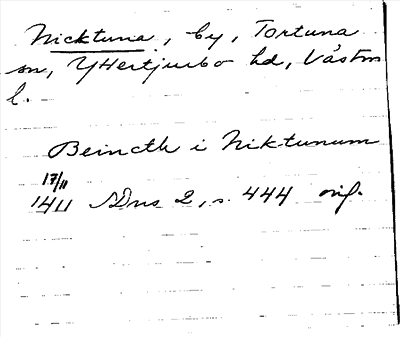 Nicktuna, by, Tortuna
sn, Yttertjurbo hd, Västm
l.
Beincth i Niktunum
17/11
1411 SDns 2, s. 444 orig.